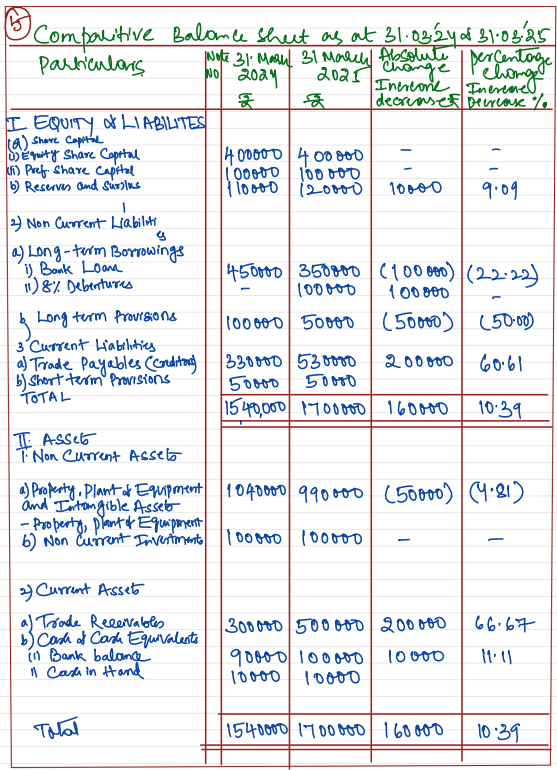 5
Comparitive Balance Sheet as at 31.03.'24 & 31.03.'25
Particulars | Note No | 31. March 2024 ₹ | 31 March 2025 ₹ | Absolute Change Increase decrease ₹ | percentage Change Increase Decrease %
I EQUITY & LIABILITES
(a) Share Capital
(i) Equity Share Capital 400000 400000 – –
(ii) Pref. Share Capital 100000 100000 – –
b) Reserves and Surplus 110000 120000 10000 9.09
2) Non Current Liabilities
a) Long-term Borrowings
i) Bank Loan 450000 350000 (100000) (22.22)
11) 8% Debentures – 100000 100000 –
b) Long term Provisions 100000 50000 (50000) (50.00)
3 Current Liabilities
a) Trade Payables (Creditors) 330000 530000 200000 60.61
b) Short term Provisions 50000 50000
TOTAL 1540,000 1700000 160000 10.39
II. ASSETS
1. Non Current Assets
a) Property, Plant & Equipment 1040000 990000 (50000) (4.81)
and Intangible Assets
– Property, plant & Equipment
b) Non Current Investments 100000 100000 – –
2) Current Assets
a) Trade Receivables 300000 500000 200000 66.67
b) Cash & Cash Equivalents
(i) Bank balance 90000 100000 10000 11.11
11 Cash in Hand 10000 10000
Total 1540000 1700000 160000 10.39